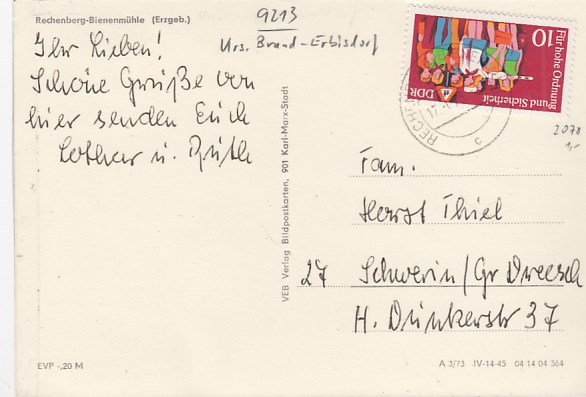 Rechenberg-Bienenmühle (Erzgeb.)
9213
Krs. Brand-Erbisdorf
Ihr Lieben!
Schöne Grüße von
hier senden Euch
Lothar u. Ruth
VEB Verlag Bildpostkarten, 901 Karl-Marx-Stadt
10
Für hohe Ordnung
und Sicherheit
DDR
RECHEN
17.
c
2078
1,-
Fam.
Horst Thiel
27 Schwerin/Gr Dreesch
H. Dunkerstr 37
EVP -,20 M
A 3/73 IV-14-45 04 14 04 364